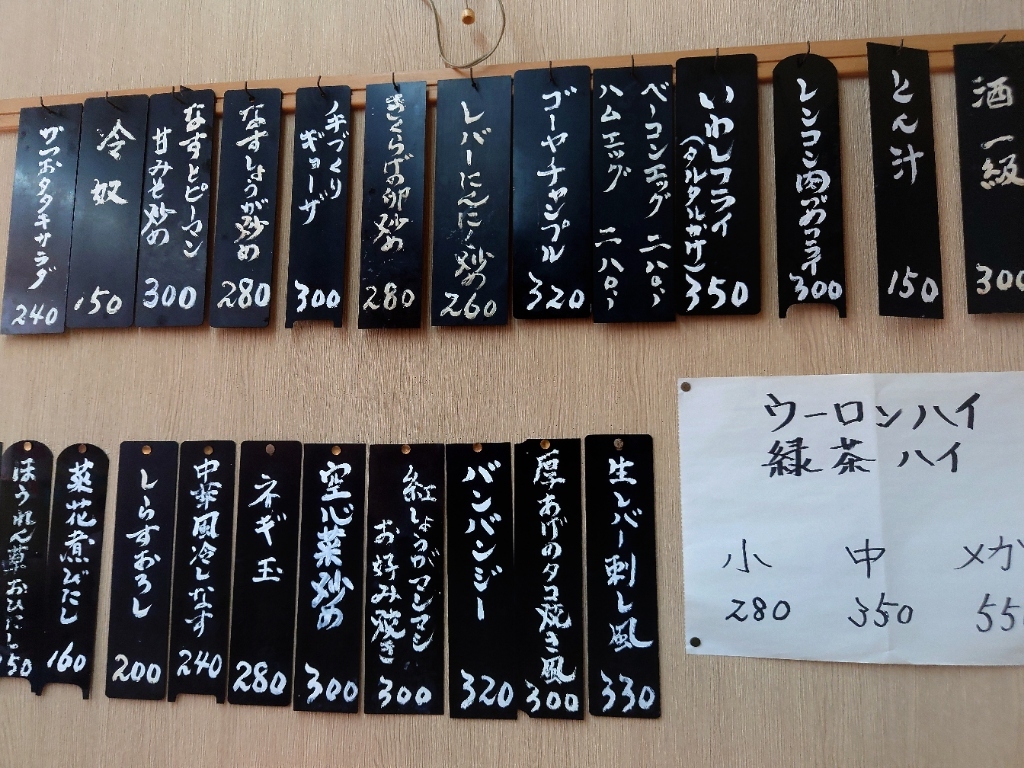 酒一級
300
とん汁
150
レンコン肉づめフライ
300
いわしフライ
(タルタルかけ)
350
ベーコンエッグ 二八〇、
ハムエッグ 二八〇、
ゴーヤチャンプル
320
レバーにんにく炒め
260
きくらげの卵炒め
280
手づくり
ギョーザ
300
なすしょうが炒め
280
なすとピーマン
甘みそ炒め
300
冷奴
150
かつおタタキサラダ
240
ウーロンハイ
緑茶ハイ
小 中 メガ
280 350 55
生レバー刺し風
330
厚あげのタコ焼き風
300
バンバンジー
320
紅しょうがマシマシ
お好み焼き
300
空心菜炒め
300
ネギ玉
280
中華風冷しなす
240
しらすおろし
200
菜花煮びたし
160
ほうれん草おひたし
50